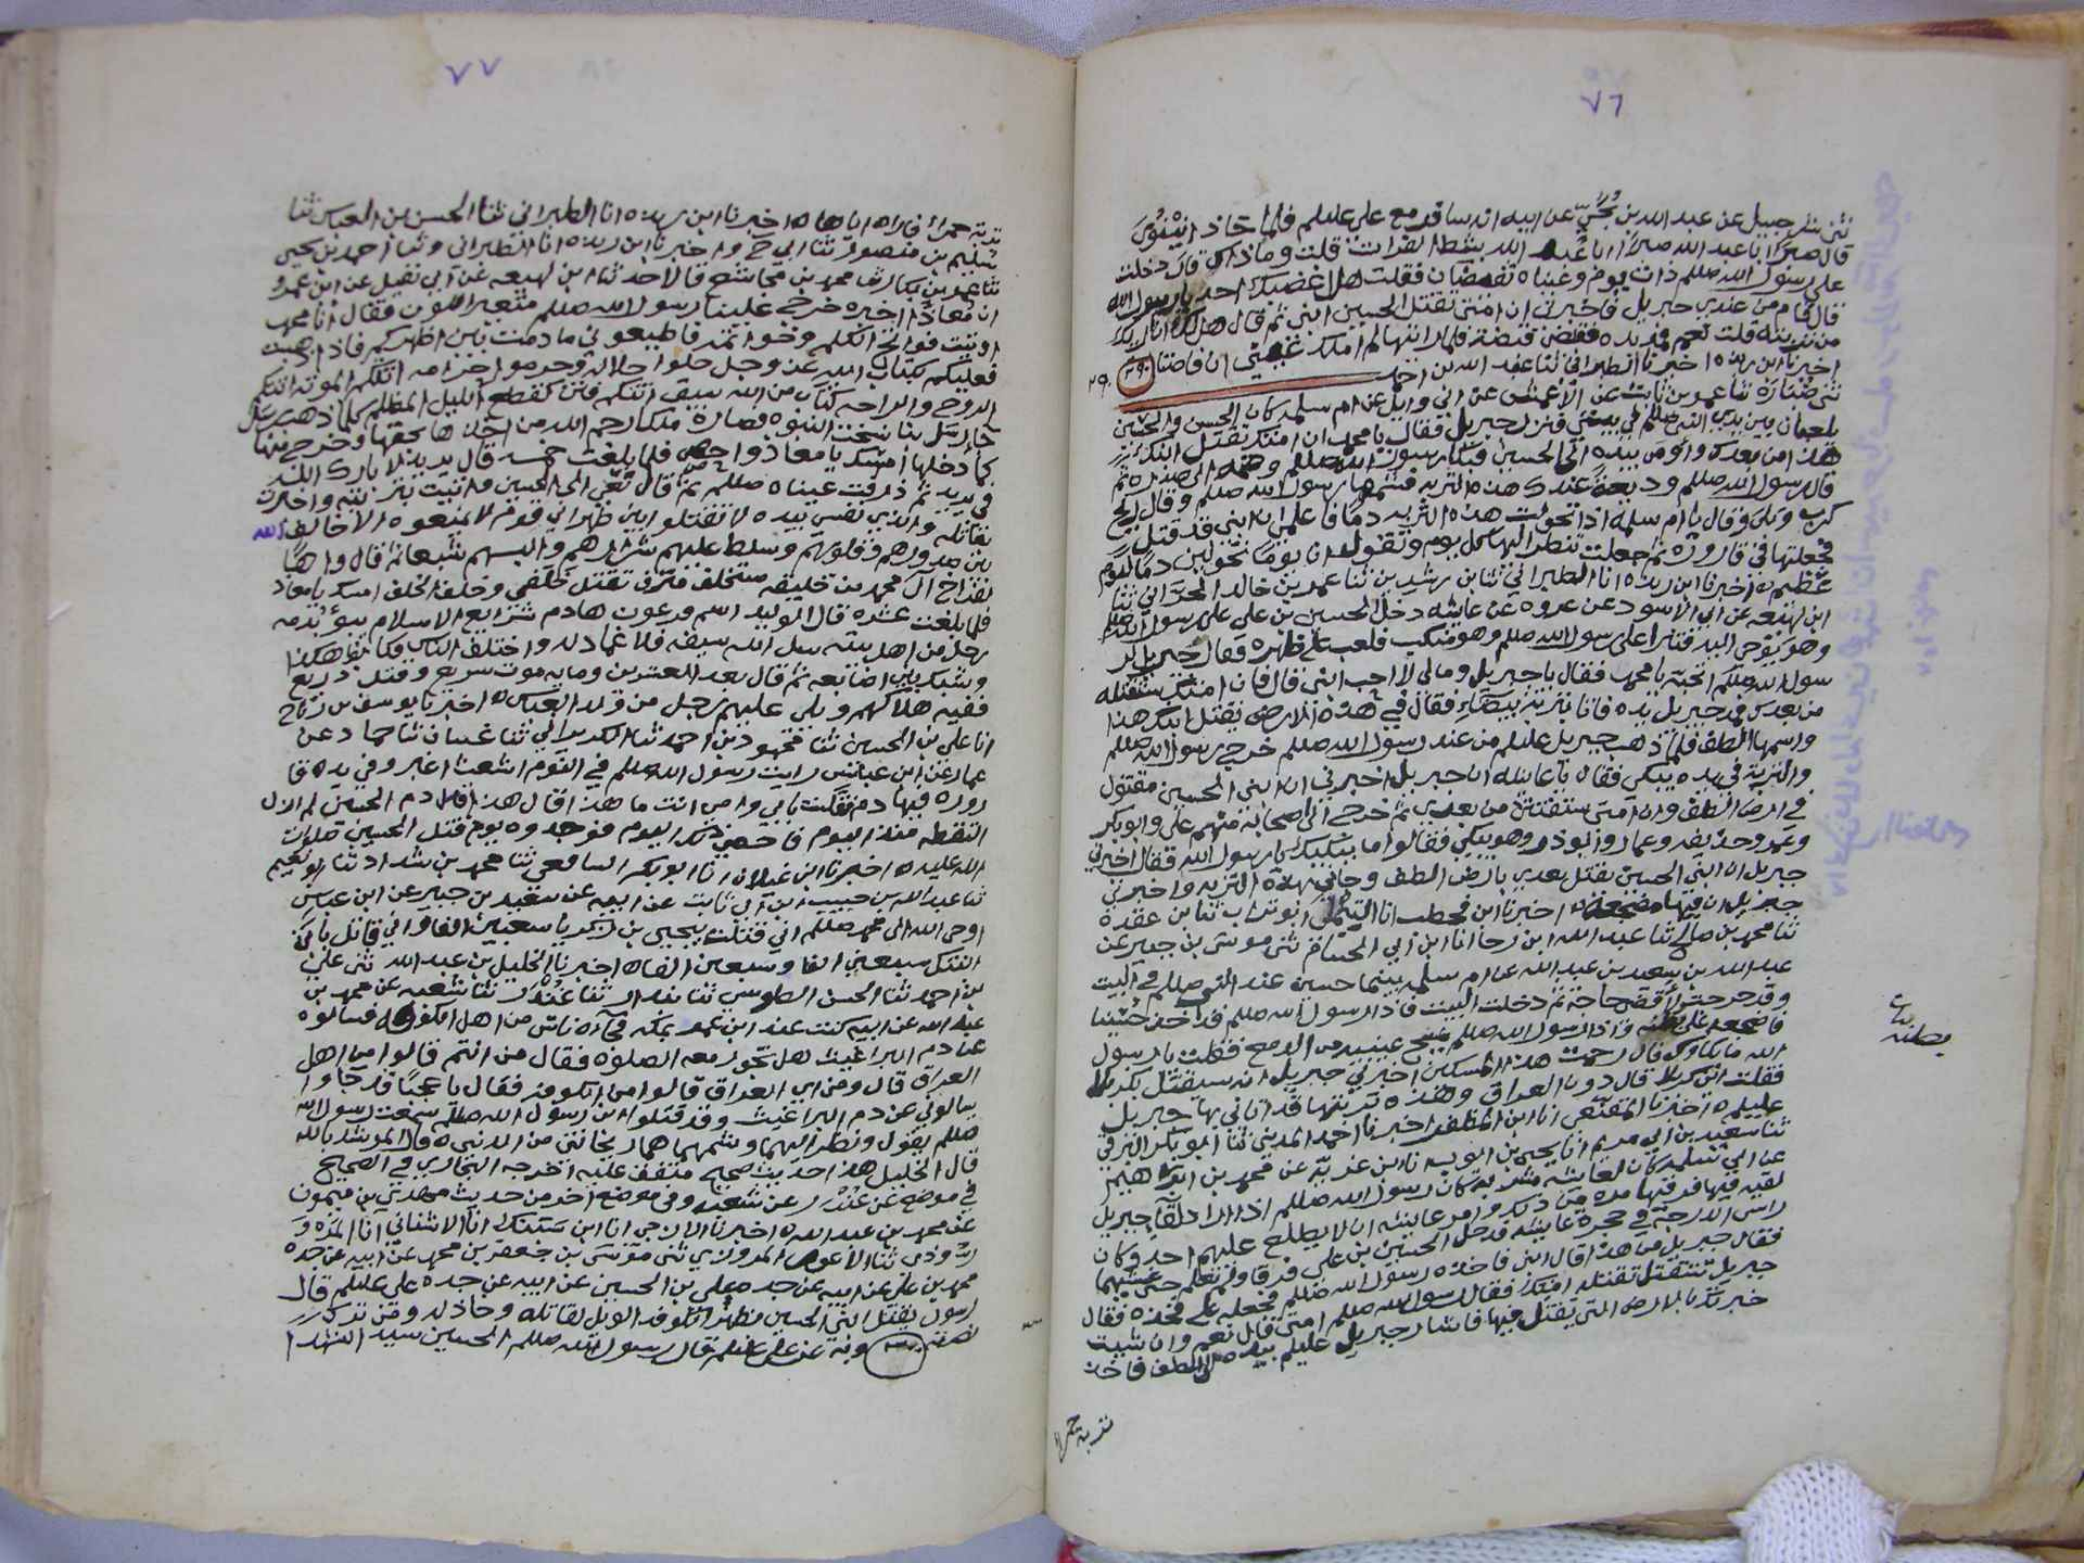 ٧٦
ثنى شرحبيل عن عبد الله بن نجى عن ابيه انه سافر مع على عليلم فلما حاذ نينوى
قال صبرًا ابا عبد الله صبرًا ابا عبد الله بشط الفرات قلت وما ذاك قال دخلت
على رسول الله صللم ذات يوم وعيناه تفيضان فقلت هل اغضبك احد يا رسول الله
قال قام من عندى جبريل فاخبرنى ان امتى تقتل الحسين ابنى ثم قال هل لك ان اريك
من تربته قلت نعم فمد يده فقبض قبضة فلما رايتها لم املك عينى ان فاضتا
اخبرنا ابن ريذه اخبرنا الطبرانى ثنا عبد الله بن احمد
ثنى عباده ثنا عمرو بن ثابت عن الاعمش عن ابى وايل عن ام سلمه كان الحسن والحسين
يلعبان بين يدى النبى صللم فى بيتى فنزل جبريل فقال يا محمد ان امتك تقتل ابنك
هذا من بعدك واومى بيده الى الحسين فبكا رسول الله صللم وضمه الى صدره ثم
قال رسول الله صللم وديعة عندك هذه التربه فشمها رسول الله صللم وقال ريح
كرب وبلى وقال يا ام سلمه اذا تحولت هذه التربه دمًا فاعلمى ان ابنى قد قتل
فجعلتها فى قاروره ثم جعلت تنظر اليها كل يوم وتقول ان يومًا تحولين دمًا ليوم
عظيم ه اخبرنا ابن ريذه انا الطبرانى ثنا ابن رشدين ثنا عمرو بن خالد الحرانى ثنا
ابن لهيعه عن ابى الاسود عن عروه عن عايشه دخل الحسين بن على على رسول الله صللم
وهو يوحى اليه فنزا على رسول الله صللم وهو منكب فلعب على ظهره فقال جبريل لر
سول الله صللم اتحبه يا محمد فقال يا جبريل وما لى لا احب ابنى قال فان امتك ستقتله
من بعدك فمد جبريل يده فاتاه بتربة بيضاء فقال فى هذه الارض يقتل ابنك هذا
واسمها الطف فلما ذهب جبريل عليلم من عند رسول الله صللم خرج رسول الله صللم
والتربة فى يده يبكى فقال يا عايشه ان جبريل اخبرنى ان ابنى الحسين مقتول
فى ارض الطف وان امتى ستفتتن من بعدى ثم خرج الى اصحابه فيهم على وابو بكر
وعمر وحذيفه وعمار وابو ذر وهو يبكى فقالوا ما يبكيك يا رسول الله فقال اخبرنى
جبريل ان ابنى الحسين يقتل بعدى بارض الطف وجانى بهذه التربه واخبرنى
جبريل ان فيها مضجعه ه اخبرنا ابن قحطب انا ابو تراب ثنا ابن عقدة
ثنا محمد بن صالح ثنا عبد الله ابن رجا انا ابن ابى الحسام ثنى موسى بن جبير عن
عبد الله بن سعيد بن عبد الله عن ام سلمه بينما حسين عند النبى صللم فى البيت
وقد خرجت لاقضى حاجة ثم دخلت البيت فاذا رسول الله صللم قد اخذ حسينا
فاضجعه على بطنه واذا رسول الله صللم يمسح عينيه من الدمع فقلت يا رسول
الله ما بكاوك قال رحمت هذا المسكين اخبرنى جبريل انه سيقتل بكربلا
فقلت اين كربلا قال دون العراق وهذه تربتها قد اتانى بها جبريل
عليلم ه اخبرنا المقنعى انا ابن المظفر اخبرنا احمد المدينى ثنا ابو بكر البرقى
ثنا سعيد بن ابى مريم انا يحيى بن ايوب انا ابن غزية عن محمد بن ابراهيم
عن ابى سلمه كان لعايشه مشربة كان رسول الله صللم اذا اراد لقا جبريل
لقيه فيها فرقيها مره من ذلك وامر عايشه ان لا يطلع عليهم احد وكان
راس الدرجة فى حجرة عايشه فدخل الحسين بن على فرقا ولم تعلم حتى غشيهما
فقال جبريل من هذا قال ابنى فاخذه رسول الله صللم فجعله على فخذه فقال
جبريل سيقتل تقتله امتك فقال رسول الله صللم امتى قال نعم وان شيت
خبرتك بالارض التى يقتل فيها فاشار جبريل عليلم بيده الى الطف فاخذ
بطنه
تربة حمرا
٧٧
تربة حمرا فاراه اياها ه اخبرنا ابن ريذه انا الطبرانى ثنا الحسن بن العباس ثنا
سليم بن منصور ثنا ابى ح واخبرنا ابن ريذه انا الطبرانى وثنا احمد بن يحيى
ثنا عمرو بن بكار ثنا محمد بن مجاشع قالا حدثنا ابن لهيعه عن ابى قبيل عن ابن عمرو
ان معاذًا اخبره خرج علينا رسول الله صللم متغير اللون فقال انا محمد
اوتيت فواتح الكلم وخواتمه فاطيعونى ما دمت بين اظهركم فاذا ذهبت
فعليكم بكتاب الله عز وجل حلوا حلاله وحرموا حرامه اتتكم الموته اتتكم
الروح والراحه كتاب من الله سبق اتتكم فتن كقطع الليل المظلم كلما ذهب رسل
جا رسل تناسخت النبوه فصارة ملكا رحم الله من اخذها بحقها وخرج منها
كما دخلها امسك يا معاذ واحص فلما بلغت خمسه قال يزيد لا بارك الله
فى يزيد ثم ذرفت عيناه صللم ثم قال نعى الى الحسين واتيت بتربته واخبرت
بقاتله والذى نفسى بيده لا تقتلوا بين ظهرانى قوم لا يمنعوه الا خالف الله
بين صدورهم وقلوبهم وسلط عليهم شرارهم والبسهم شيعا ثم قال واهًا
لفراخ ال محمد من خليفه مستخلف مترف تقتل خلفى وخلف الخلف امسك يا معاذ
فلما بلغت عشره قال الوليد اسم فرعون هادم شرايع الاسلام يبوء بدمه
رجل من اهل بيته يسل الله سيفه فلا غماد له واختلف الناس فكانوا هكذا
وشبك بين اصابعه ثم قال بعد العشرين ومايه موت سريع وقتل ذريع
ففيه هلاكهم ويلى عليهم رجل من ولد العباس ه اخبرنا يوسف بن رباح
انا على بن الحسين ثنا محمود بن احمد ثنا الكديرانى ثنا غسان ثنا حماد عن
عمار عن ابن عباس رايت رسول الله صللم فى النوم اشعث اغبر وفى يده قا
روره فيها دم فقلت بابى وامى انت ما هذا قال هذا دم الحسين لم ازل
التقطه منذ اليوم فاحصى ذلك اليوم فوجدوه يوم قتل الحسين صلوات
الله عليه ه اخبرنا ابن غيلان انا ابو بكر الشافعى ثنا محمد بن شداد ثنا ابو نعيم
ثنا عبد الله بن حبيب ابن ابى ثابت عن ابيه عن سعيد بن جبير عن ابن عباس
اوحى الله الى محمد صللم انى قتلت بيحيى بن زكريا سبعين الفا وانى قاتل بابن
ابنتك سبعين الفا وسبعين الفا ه اخبرنا الخليل بن عبد الله ثنى على
بن احمد ثنا الحسن الطوسى ثنا بندار ثنا غندر ثنا شعبه عن محمد بن
عبد الله عن ابيه كنت عند ابن عمر بمكه فجاه ناس من اهل الكوفه فسالوه
عن دم البراغيث هل تجوز معه الصلوه فقال من انتم قالوا من اهل
العراق قال ومن اى العراق قالوا من الكوفه فقال يا عجبًا قد جاوا
يسالونى عن دم البراغيث وقد قتلوا ابن رسول الله صللم سمعت رسول الله
صللم يقول ونظر اليهما وشمهما هما ريحانتى من الدنيا ه قال المرشد بالله
قال الخليل هذا حديث صحيح متفق عليه اخرجه البخارى فى الصحيح
فى موضع عن غندر عن شعبه وفى موضع اخر من حديث مهدى بن ميمون
عن محمد بن عبد الله ه اخبرنا الازجى انا ابن سبنك انا الاشنانى انا المرو
روذى ثنا المروزى ثنى موسى بن جعفر بن محمد عن ابيه عن جده
محمد بن على عن ابيه عن جده على بن الحسين عن ابيه عن جده على عليلم قال
رسول يقتل ابنى الحسين بظهر الكوفه الويل لقاتله وخاذله ومن ترك
نصرته وبه عن على عليلم قال رسول الله صللم الحسين سيد الشهدا